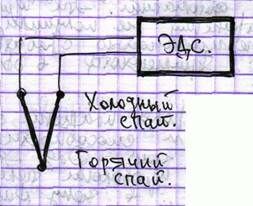 ЭДС.
Холодный
спай.
Горячий
спай.